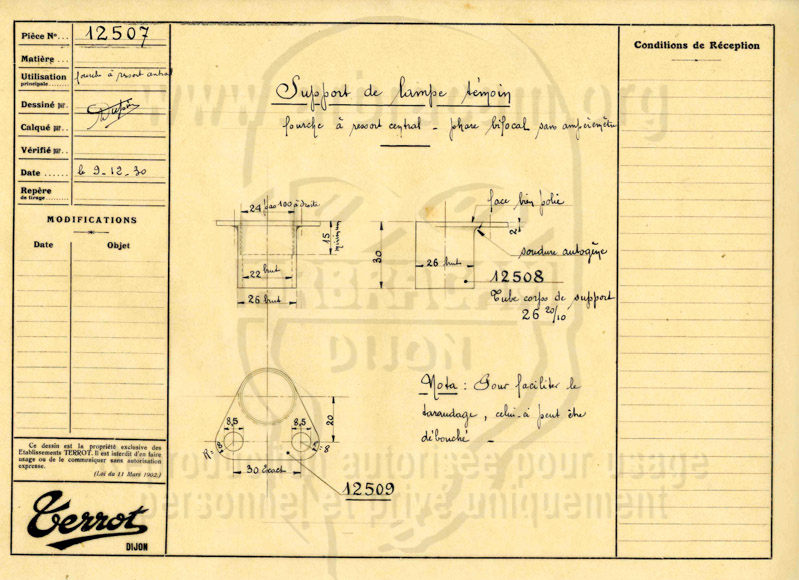 Pièce N°... 12507
Matière...
Utilisation principale... fourche à ressort central
Dessiné par.
Calqué par...
Vérifié par..
Date ...... le 9-12-30
Repère de tirage.
MODIFICATIONS
Date Objet
Ce dessin est la propriété exclusive des
Etablissements TERROT. Il est interdit d'en faire
usage ou de le communiquer sans autorisation
expresse.
(Loi du 11 Mars 1902.)
Terrot
DIJON
Support de lampe témoin
fourche à ressort central - phare bifocal sans ampèremètre
24 pas 100 à droite
15
minimum
22 brut
26 brut
face bien polie
2
30
26 brut
soudure autogène
12508
Tube corps de support
26 20/10
8,5
8,5
20
R=8
R=8
30 Exact
12509
Nota : Pour faciliter le
taraudage, celui-ci peut être
débouché -
Conditions de Réception
DIJON
Reproduction autorisée pour usage
personnel et privé uniquement